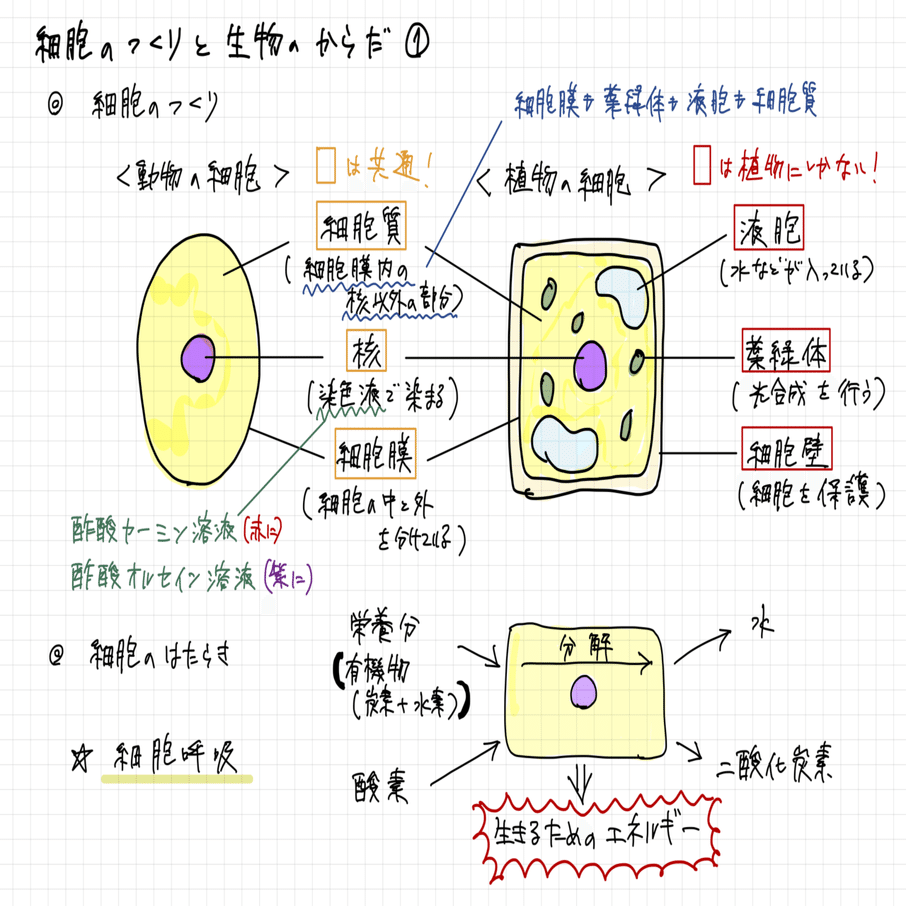 細胞のつくりと生物のからだ①
◎ 細胞のつくり
細胞膜+葉緑体+液胞+細胞質
<動物の細胞>
□は共通!
<植物の細胞>
□は植物にしかない!
細胞質
(細胞膜内の
核以外の部分)
核
(染色液で染まる)
細胞膜
(細胞の中と外
を分けている)
液胞
(水などが入っている)
葉緑体
(光合成を行う)
細胞壁
(細胞を保護)
酢酸カーミン溶液(赤に)
酢酸オルセイン溶液(紫に)
◎ 細胞のはたらき
☆ 細胞呼吸
栄養分
(有機物
(炭素+水素))
酸素
分解
水
二酸化炭素
生きるためのエネルギー